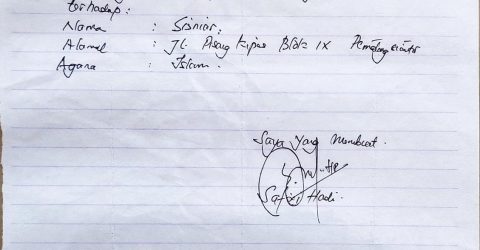 terhadap :
Nama : Sisniar.
Alamat : Jl. Pisang Kipas Blok IX
Agama : Islam.
Saya Yang Membuat.
Hadi